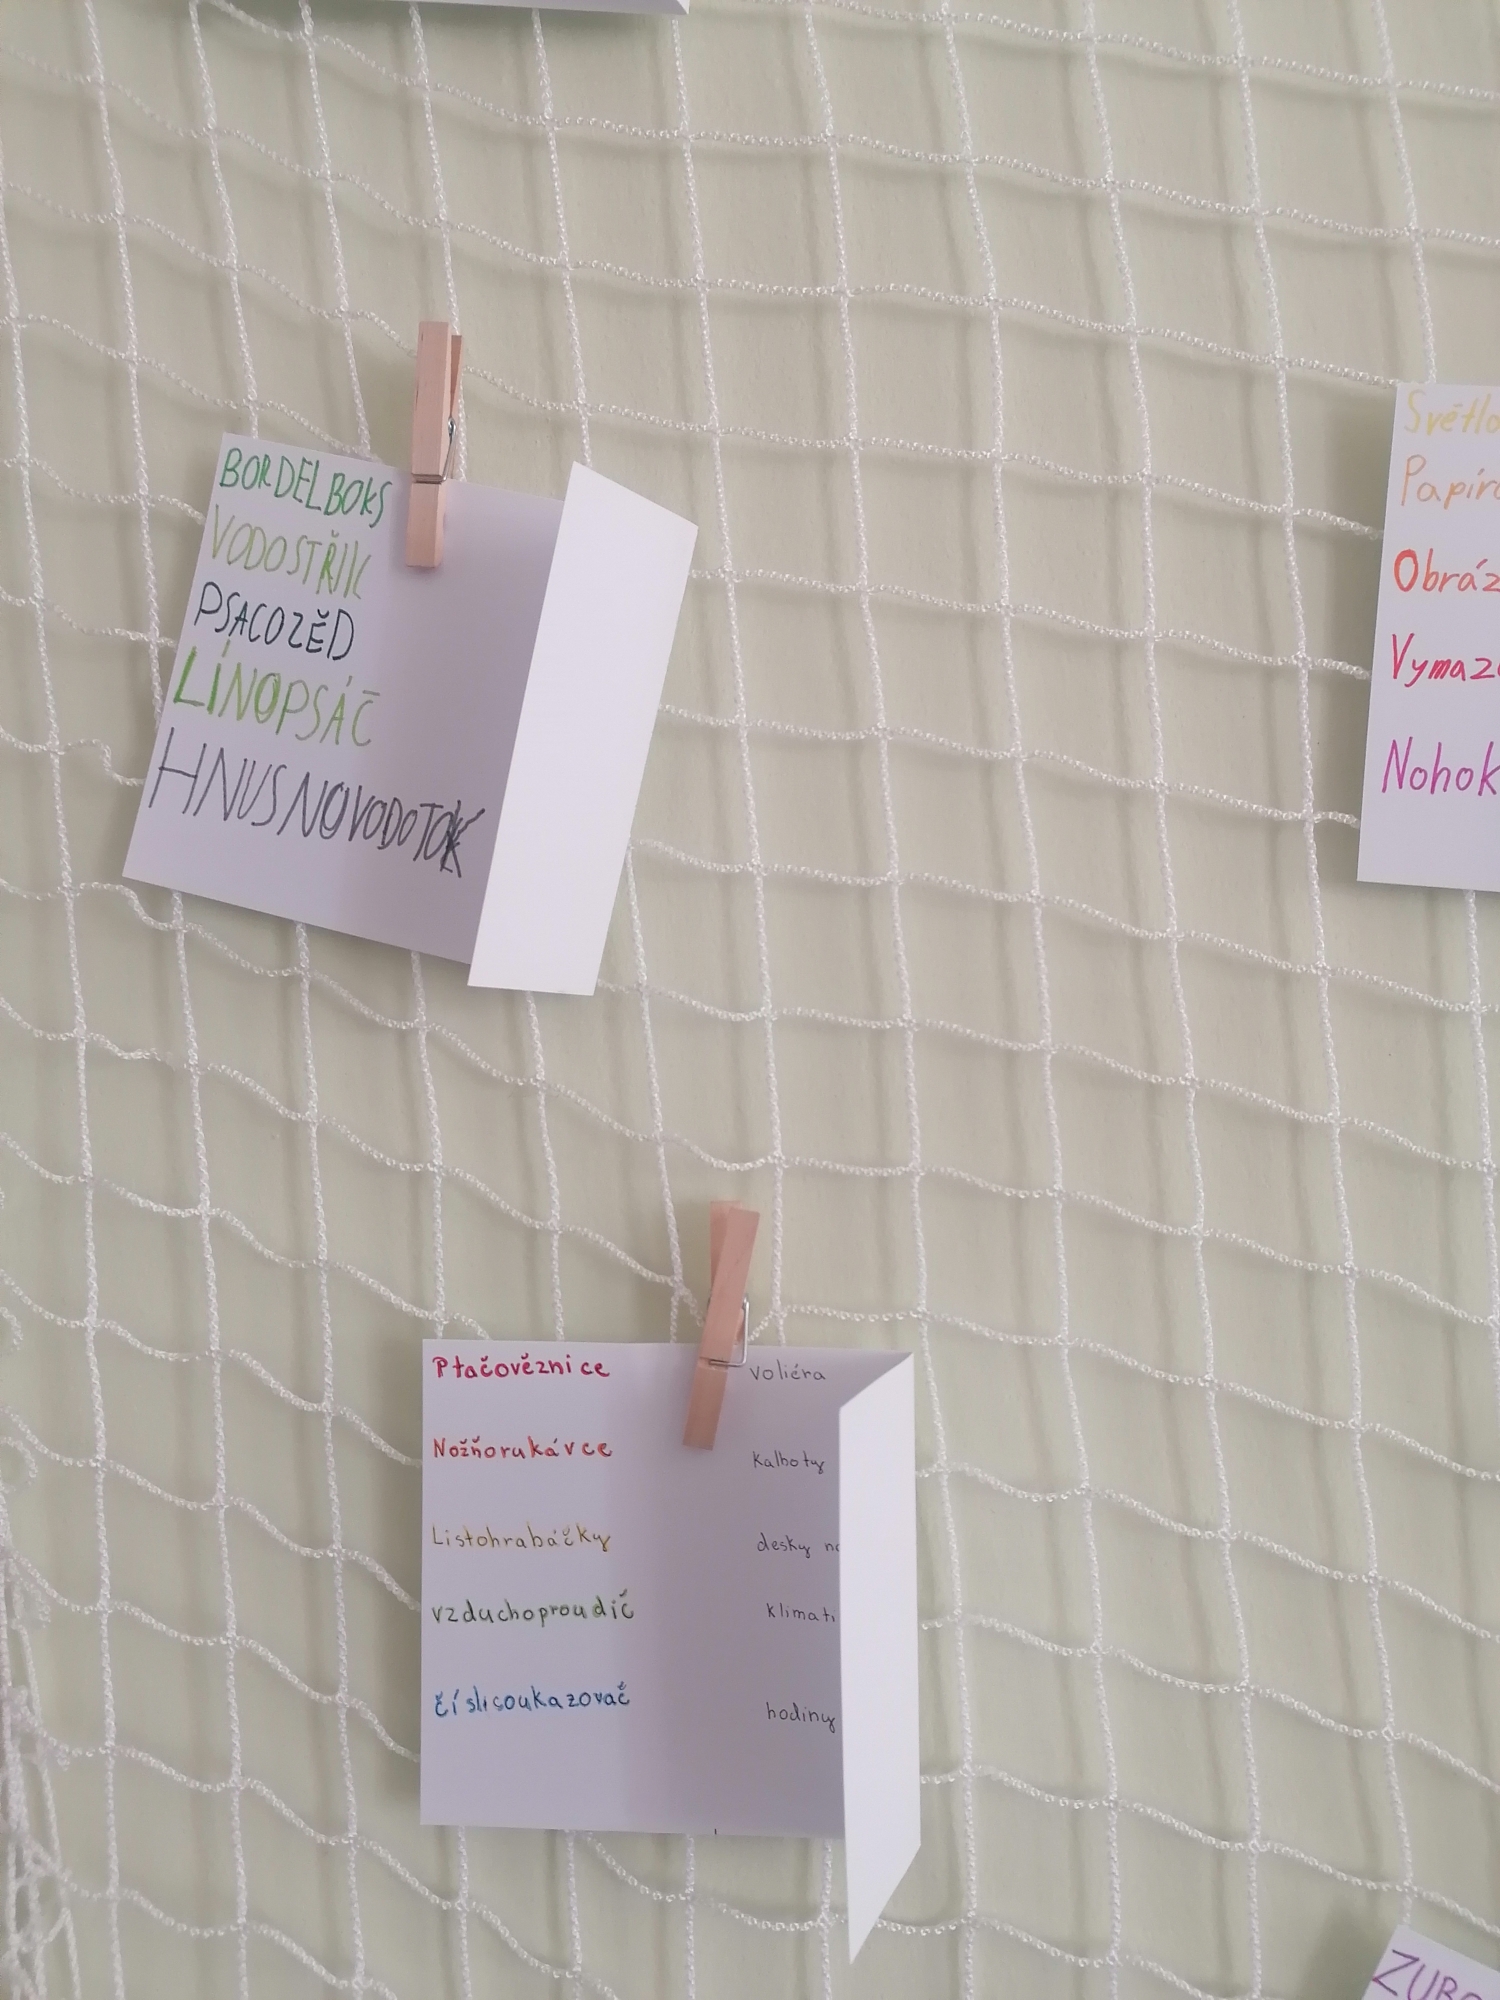 BORDELBOKS
VODOSTŘIK
PSACOZĚD
LÍNOPSÁČ
HNUSNOVODOTOK
Světlo
Papíro
Obráz
Vymaz
Nohok
Ptačověznice voliéra
Nožňorukávce kalhoty
Listohrabáčky desky na
vzduchoproudič klimati
číslicoukazovač hodiny
ZUBO